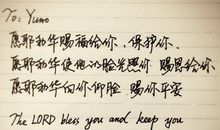 To: Yuno
愿耶和华赐福给你、保护你.
愿耶和华使他的脸光照你 赐恩给你.
愿耶和华向你仰脸 赐你平安
The LORD bless you and keep you